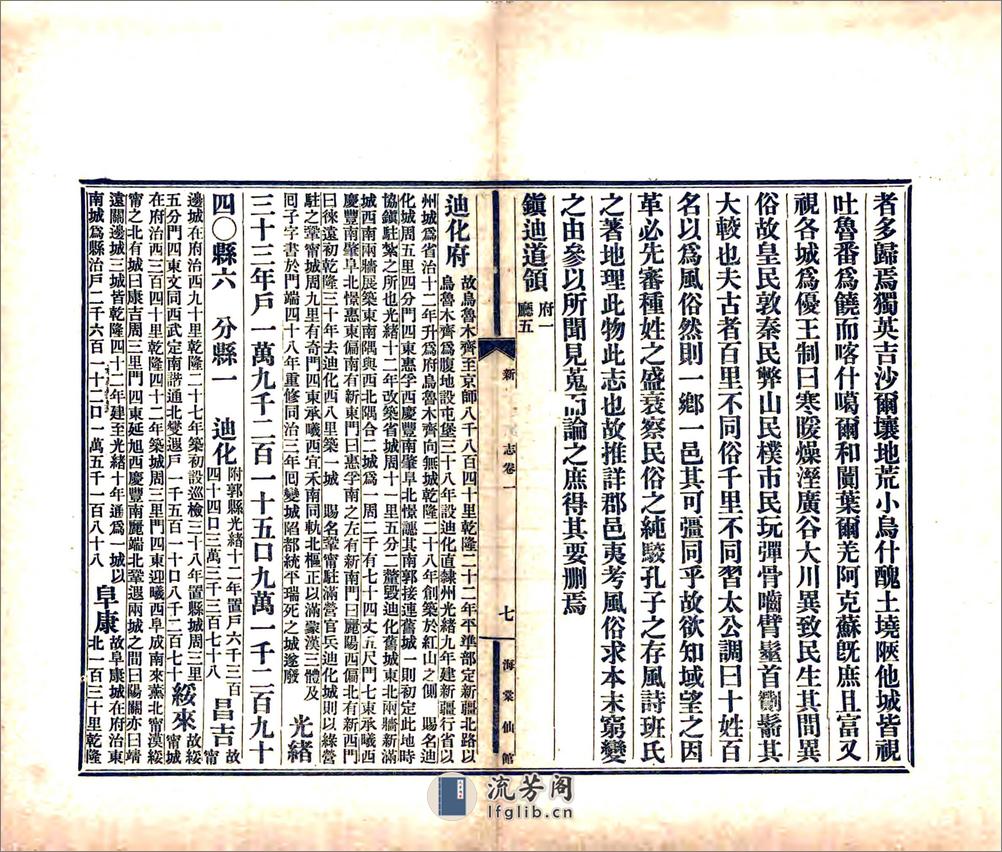 者多歸焉獨英吉沙爾壤地荒小烏什醜土墝陿他城皆視
吐魯番爲饒而喀什噶爾和闐葉爾羌阿克蘇旣庶且富又
視各城爲優王制曰寒暖燥溼廣谷大川異致民生其間異
俗故皇民敦秦民弊山民樸市民玩彈骨嚙臂鬖首劗鬋其
大較也夫古者百里不同俗千里不同習太公調曰十姓百
名以爲風俗然則一鄉一邑其可彊同乎故欲知域望之因
革必先審種姓之盛衰察民俗之純駮孔子之存風詩班氏
之著地理此物此志也故推詳郡邑夷考風俗求本末窮變
之由參以所聞見蒐而論之庶得其要删焉
鎭迪道領府一廳五
新 志卷一 七 海棠仙館
迪化府故烏魯木齊至京師八千八百四十里乾隆二十二年平準部定新疆北路以
烏魯木齊爲腹地設屯堡三十八年設迪化直隸州光緒九年建新疆行省以
州城爲省治十二年升爲府烏魯木齊向無城乾隆二十八年創築於紅山之側 賜名迪
化城周五里四分門四東惠孚西慶豐南肇阜北憬諰其南郭接連舊城一則初定此地時
協鎭駐紮之所也光緒十二年改築省城周十一里五分二釐毁迪化舊城東北兩牆新滿
城西南兩牆展築東南隅與西北隅合二城爲一周二千有七十四丈五尺門七東承曦西
慶豐南肇阜北憬惠東偏南有新東門曰惠孚南之左有新南門曰麗陽西偏北有新西門
曰徠遠初乾隆三十年去迪化西八里築一城 賜名鞏甯駐滿營官兵迪化城則以綠營
駐之鞏甯城周九里有奇門四東承曦西宜禾南同軌北樞正以滿蒙漢三體及
囘子字書於門端四十八年重修同治三年囘變城陷都統平瑞死之城遂廢 光緖
三十三年戶一萬九千二百一十五口九萬一千二百九十
四〇縣六 分縣一 迪化附郭縣光緒十二年置戶六千三百
四十四口三萬二千三百七十八 昌吉故甯
邊城在府治西九十里乾隆二十七年築初設巡檢三十八年置縣城周三里
五分門四東文同西武定南諧通北變遐戶一千五百一十口八千二百七十 綏來故綏甯城
在府治西三百四十里乾隆四十二年築城周三里門四東迎曦西阜成南來薰北甯漠綏
甯之北有城曰康吉周三里門四東延旭西慶豐南麗端北鞏遐兩城之間曰陽關亦曰靖
遠關邊城三城皆乾隆四十二年建至光緒十年通爲一城以
南城爲縣治戶二千六百一十二口一萬五千一百八十八 阜康故阜康城在府治東
北一百三十里乾隆
流芳阁
lfglib.cn